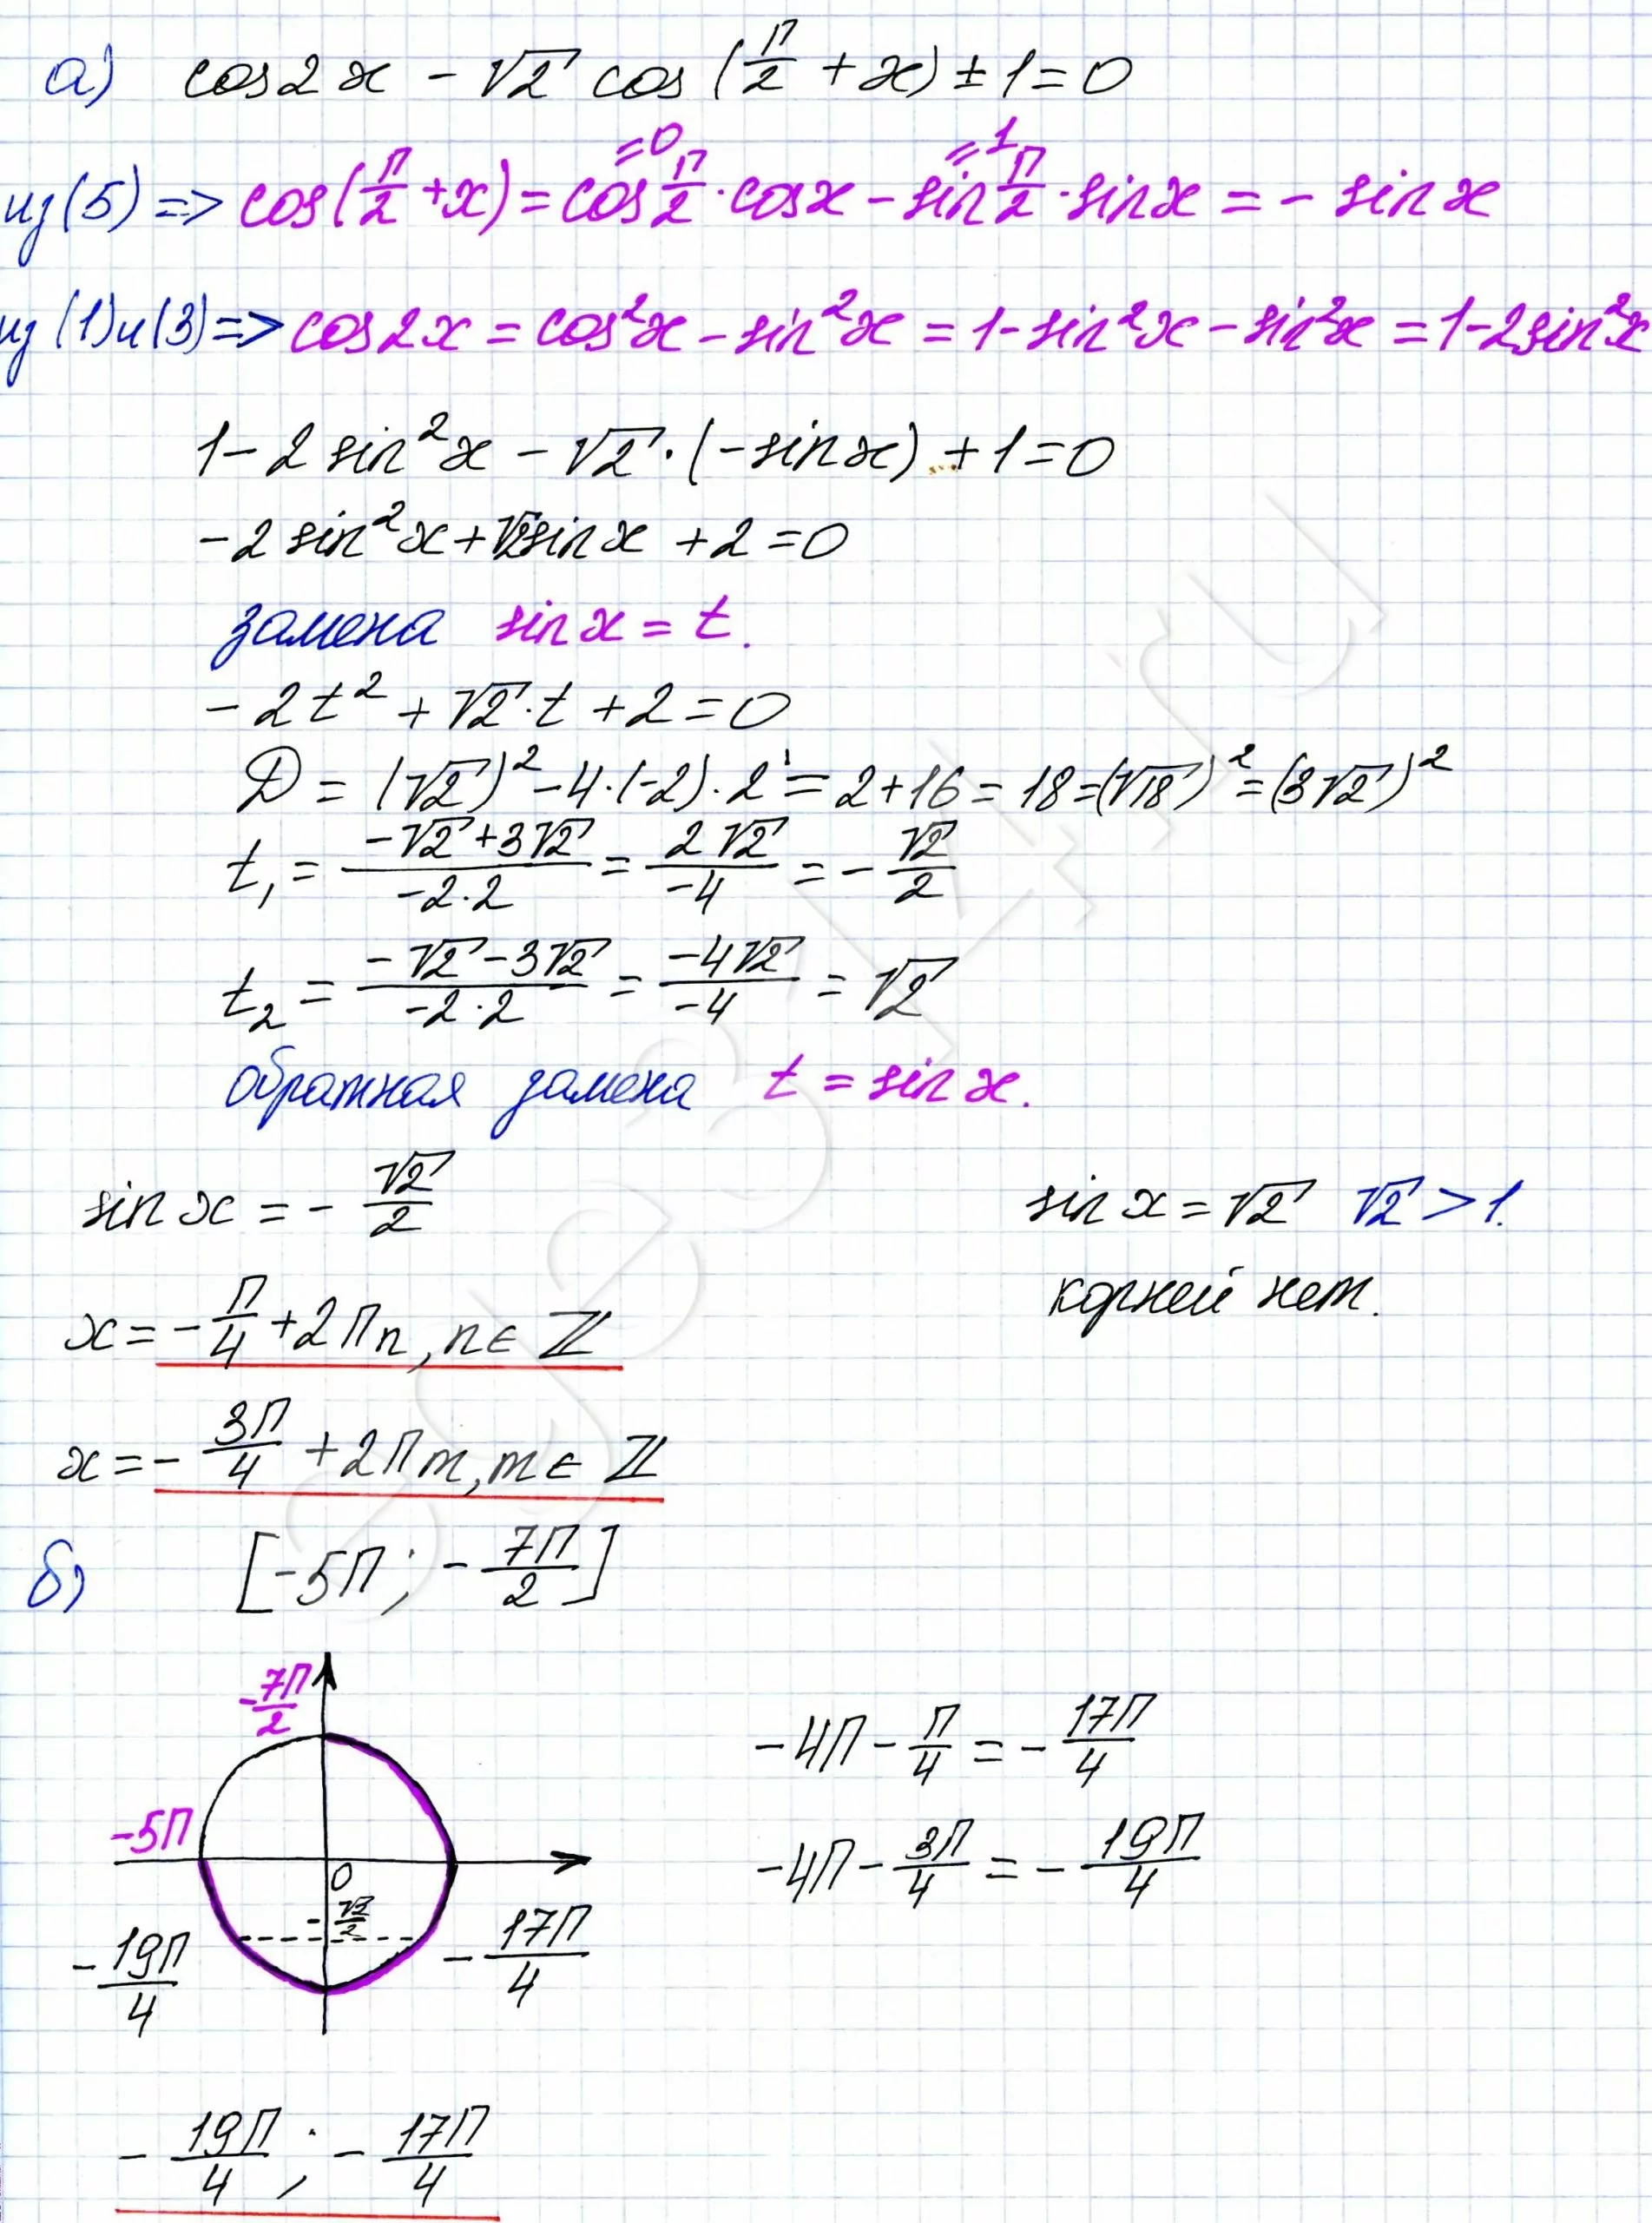 а) cos2x - √2 cos(π/2 + x) ± 1 = 0
=0 =1
из (5) => cos(π/2 + x) = cos π/2 · cosx - sin π/2 · sinx = - sinx
из (1) и (3) => cos2x = cos²x - sin²x = 1 - sin²x - sin²x = 1 - 2sin²x
1 - 2sin²x - √2 · (-sinx) + 1 = 0
-2sin²x + √2sinx + 2 = 0
замена sinx = t.
-2t² + √2 · t + 2 = 0
D = (√2)² - 4 · (-2) · 2 = 2 + 16 = 18 = (√18)² = (3√2)²
t₁ = (-√2 + 3√2)/(-2·2) = 2√2/-4 = - √2/2
t₂ = (-√2 - 3√2)/(-2·2) = -4√2/-4 = √2
обратная замена t = sinx.
sinx = - √2/2 sinx = √2 √2 > 1.
x = - π/4 + 2πn, n ∈ Z корней нет.
x = - 3π/4 + 2πm, m ∈ Z
б) [-5π; - 7π/2]
-7π/2
-4π - π/4 = - 17π/4
-5π
-4π - 3π/4 = - 19π/4
0
- √2/2
- 19π/4 - 17π/4
- 19π/4 ; - 17π/4